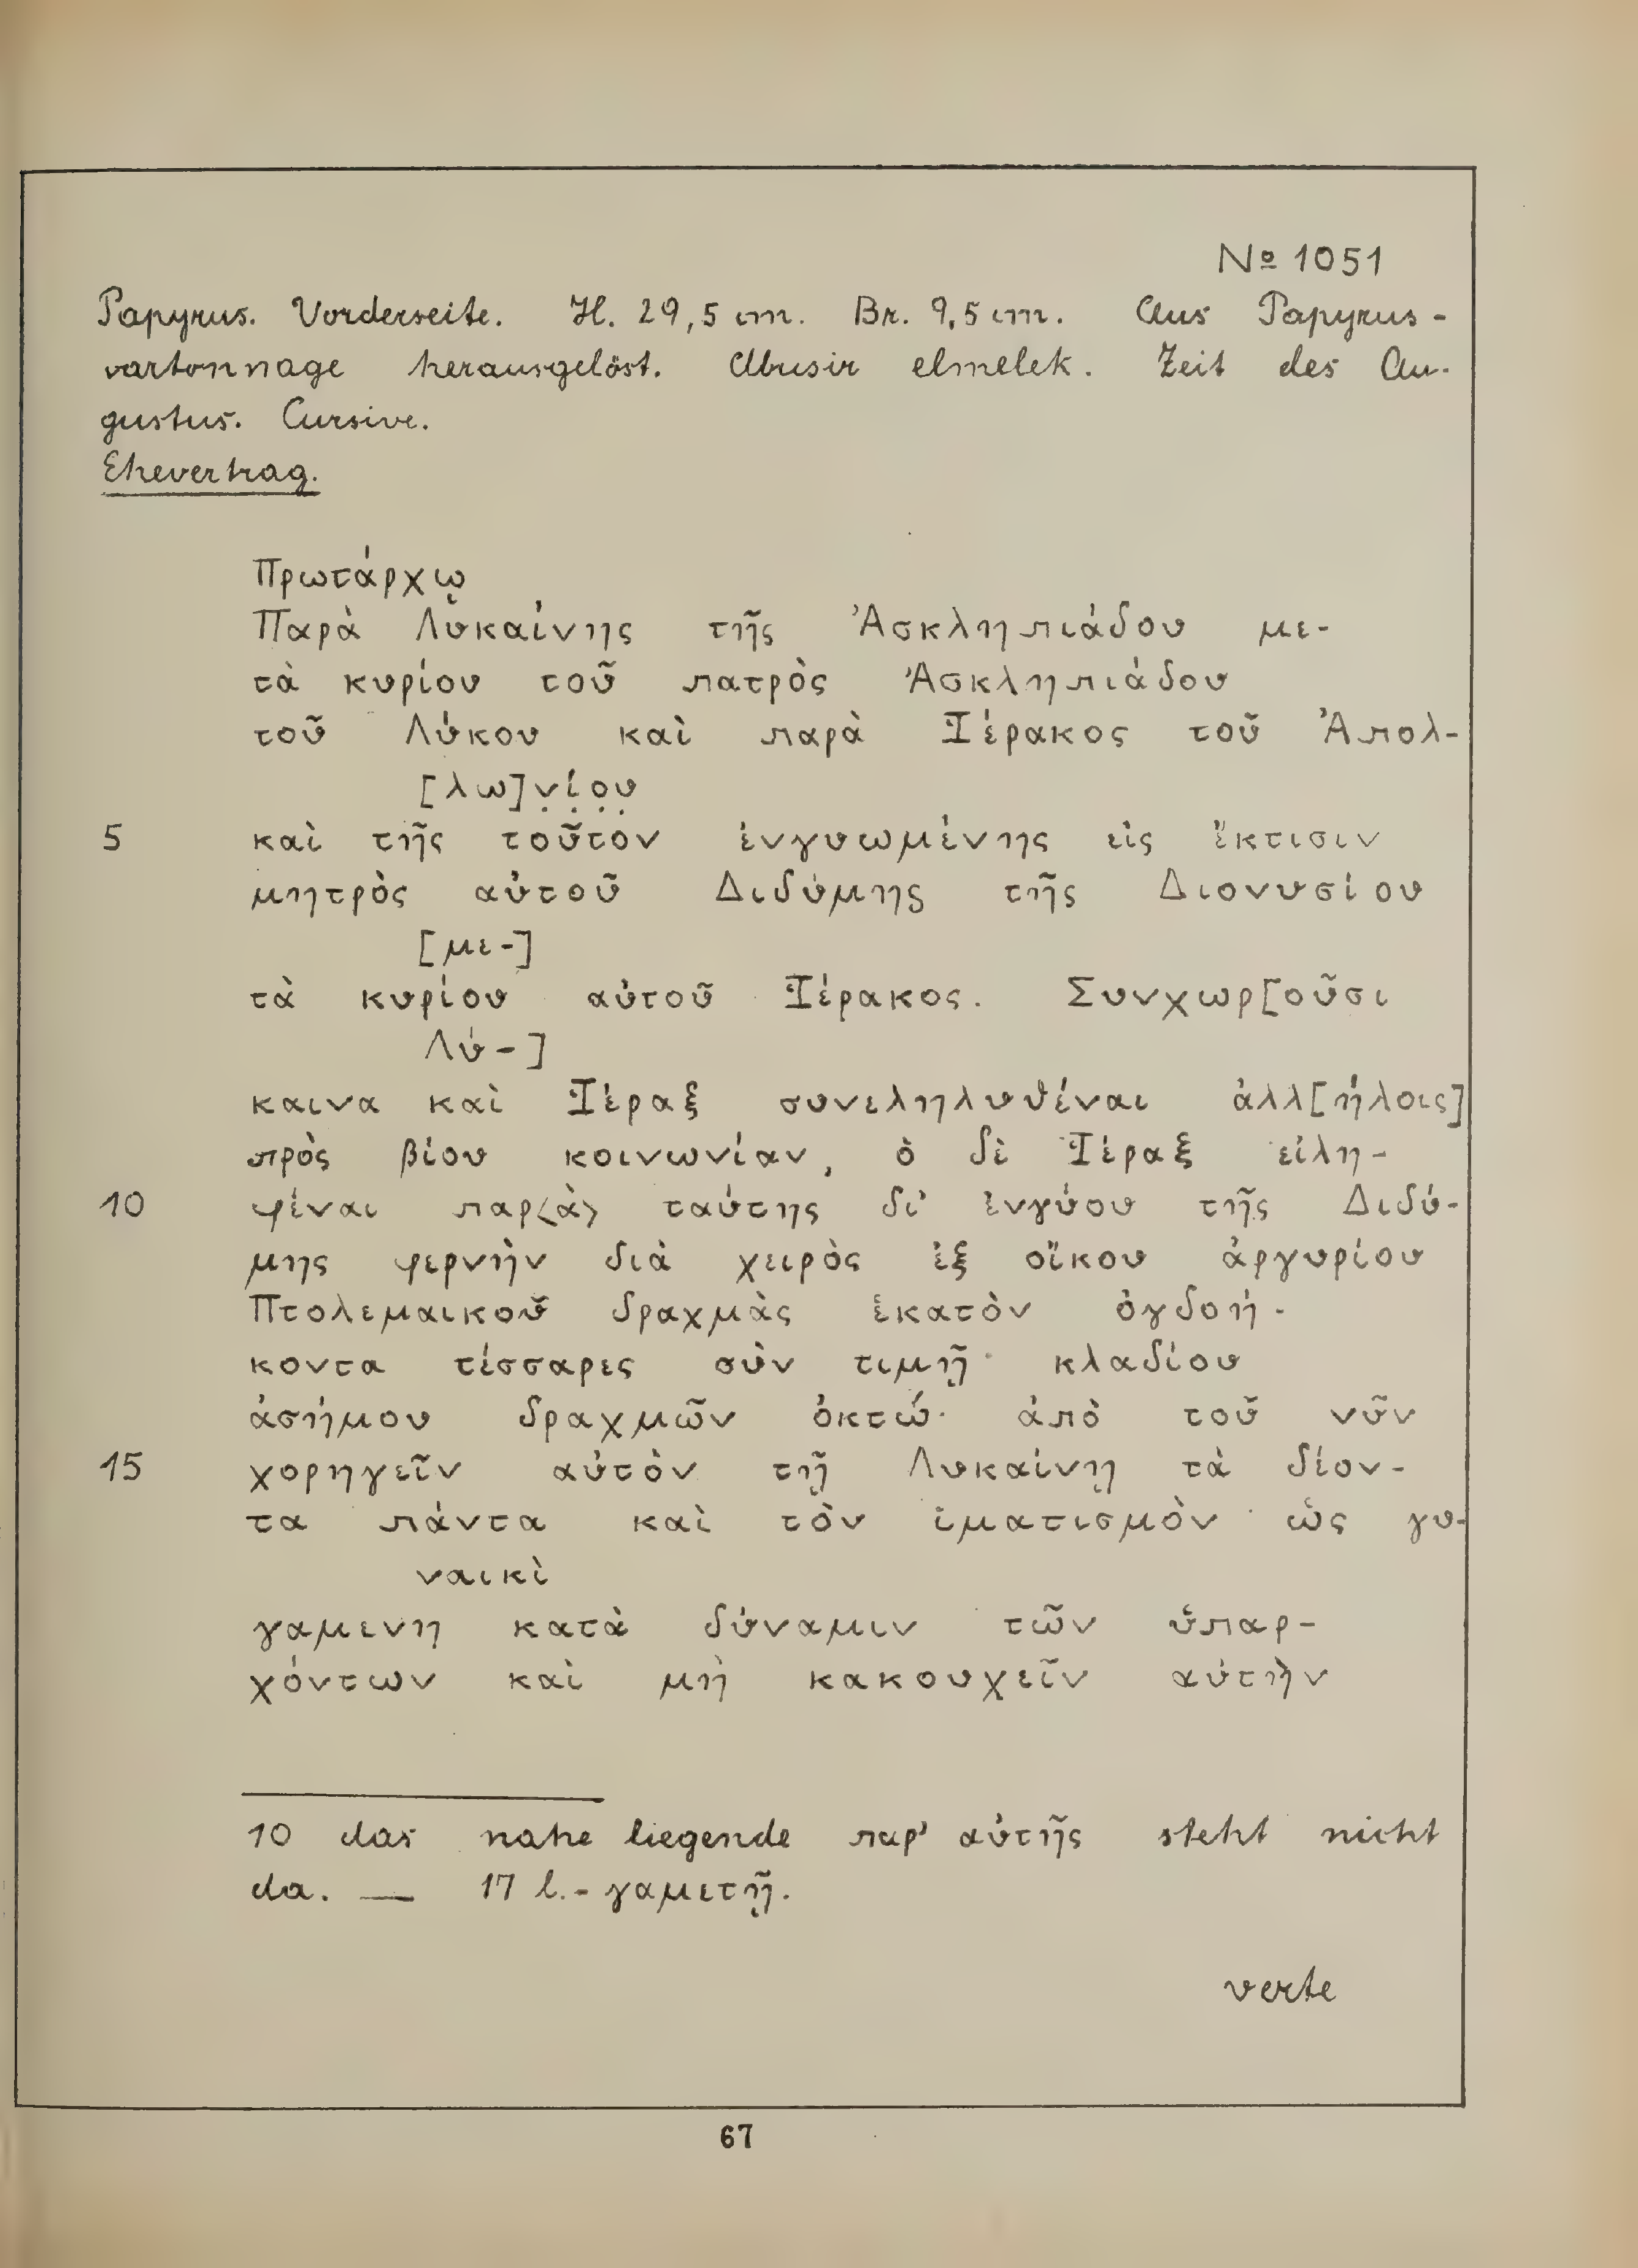 № 1051
Papyrus. Vorderseite. H. 29,5 cm. Br. 9,5 cm. Aus Papyrus-
cartonnage herausgelöst. Abusir elmelek. Zeit des Au-
gustus. Cursive.
Ehevertrag.
Πρωτάρχῳ
Παρὰ Λυκαίνης τῆς Ἀσκληπιάδου με-
τὰ κυρίου τοῦ πατρὸς Ἀσκληπιάδου
τοῦ Λύκου καὶ παρὰ Ἱέρακος τοῦ Ἀπολ-
[λω]ν̣ί̣ο̣υ̣
5 καὶ τῆς τοῦτον ἐνγυωμένης εἰς ἔκτισιν
μητρὸς αὐτοῦ Διδύμης τῆς Διονυσίου
[με-]
τὰ κυρίου αὐτοῦ Ἱέρακος. Συνχωρ[οῦσι
Λύ-]
καινα καὶ Ἱέραξ συνεληλυθέναι ἀλλ[ήλοις]
πρὸς βίου κοινωνίαν, ὁ δὲ Ἱέραξ εἰλη-
10 φέναι παρ〈ὰ〉 ταύτης δι' ἐνγύου τῆς Διδύ-
μης φερνὴν διὰ χειρὸς ἐξ οἴκου ἀργυρίου
Πτολεμαικοῦ δραχμὰς ἑκατὸν ὀγδοή-
κοντα τέσσαρες σὺν τιμῇ κλαδίου
ἀσήμου δραχμῶν ὀκτώ· ἀπὸ τοῦ νῦν
15 χορηγεῖν αὐτὸν τῇ Λυκαίνῃ τὰ δέον-
τα πάντα καὶ τὸν ἱματισμὸν ὡς γυ-
ναικὶ
γαμενη κατὰ δύναμιν τῶν ὑπαρ-
χόντων καὶ μὴ κακουχεῖν αὐτὴν
10 das nahe liegende παρ' αὐτῆς steht nicht
da. — 17 l. γαμετῇ.
verte
67